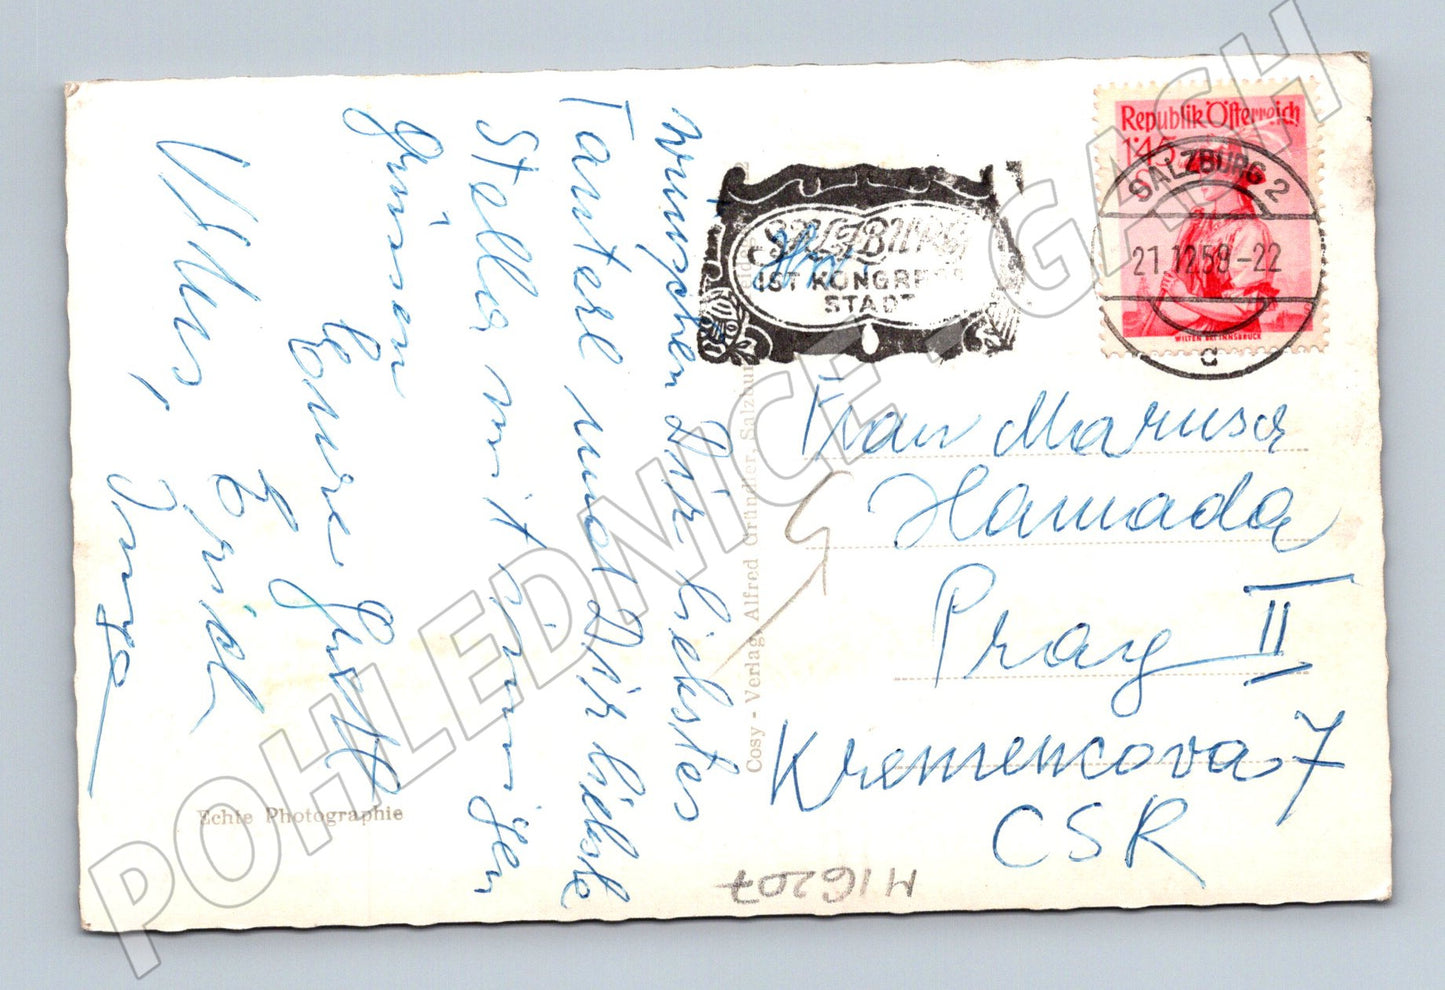 wünschen Dir liebstes
Tanterl und Dir liebste
Stella mit innigen
Grüssen
Eure
Erich
Inge
Echte Photographie
Cosy - Verlag, Alfred Gründler, Salzburg
SALZBURG
IST KONGRESS
STADT
Republik Österreich
1·45
SALZBURG 2
21.12.58-22
a
WILTEN BEI INNSBRUCK
Frau Marusa
Hamada
Prag II
Kremencova 7
CSR
M16207
POHLEDNICE - GASH